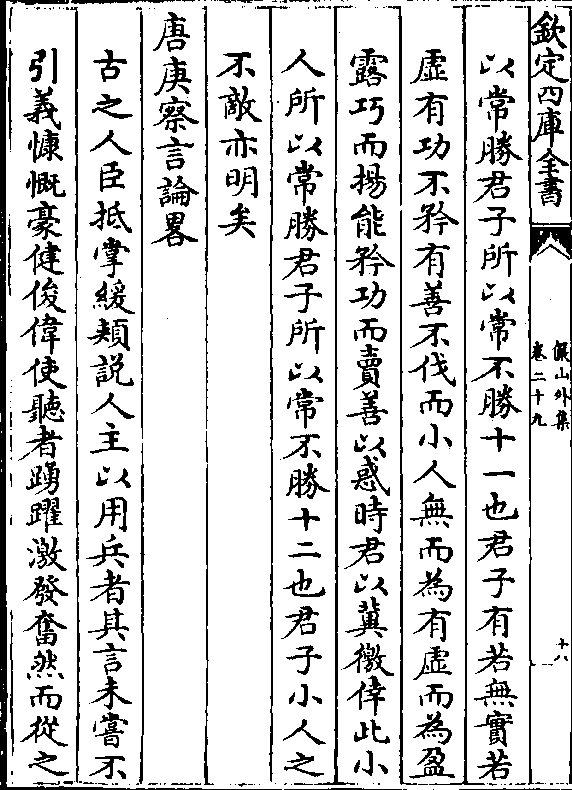 欽定四庫全書
儼山外集
卷二十九
十八
以常勝君子所以常不勝十一也君子有若無實若
虛有功不矜有善不伐而小人無而為有虛而為盈
露巧而揚能矜功而賣善以惑時君以冀徼倖此小
人所以常勝君子所以常不勝十二也君子小人之
不敵亦明矣
唐庚察言論畧
古之人臣抵掌緩頰説人主以用兵者其言未嘗不
引義慷慨豪健俊偉使聽者踴躍激發奮然而從之